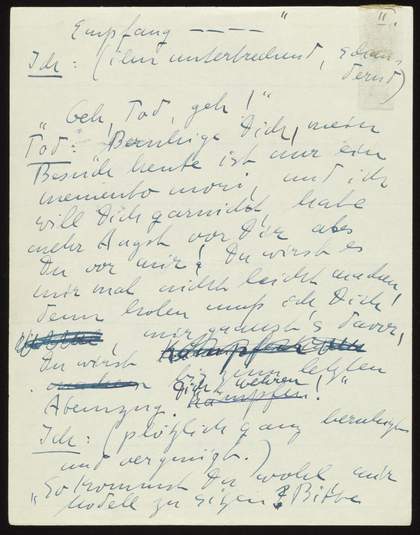 Empfang ———— "
II.
Ich: (ihn unterbrechend, schau-
dernd)
„Geh, Tod, geh!"
Tod: Beruhige Dich, mein
Besuch heute ist nur ein
memento mori, und ich
will Dich garnicht, habe
mehr Angst vor Dir als
Du vor mir! Du wirst es
mir mal nicht leicht machen,
denn holen muß ich Dich!
, mir graust's davor,
Du wirst
bis zum letzten
Dich wehren!"
Atemzug.
Ich: (plötzlich ganz beruhigt
und vergnügt.)
„So kommst Du wohl mir
Modell zu sitzen? Bitte